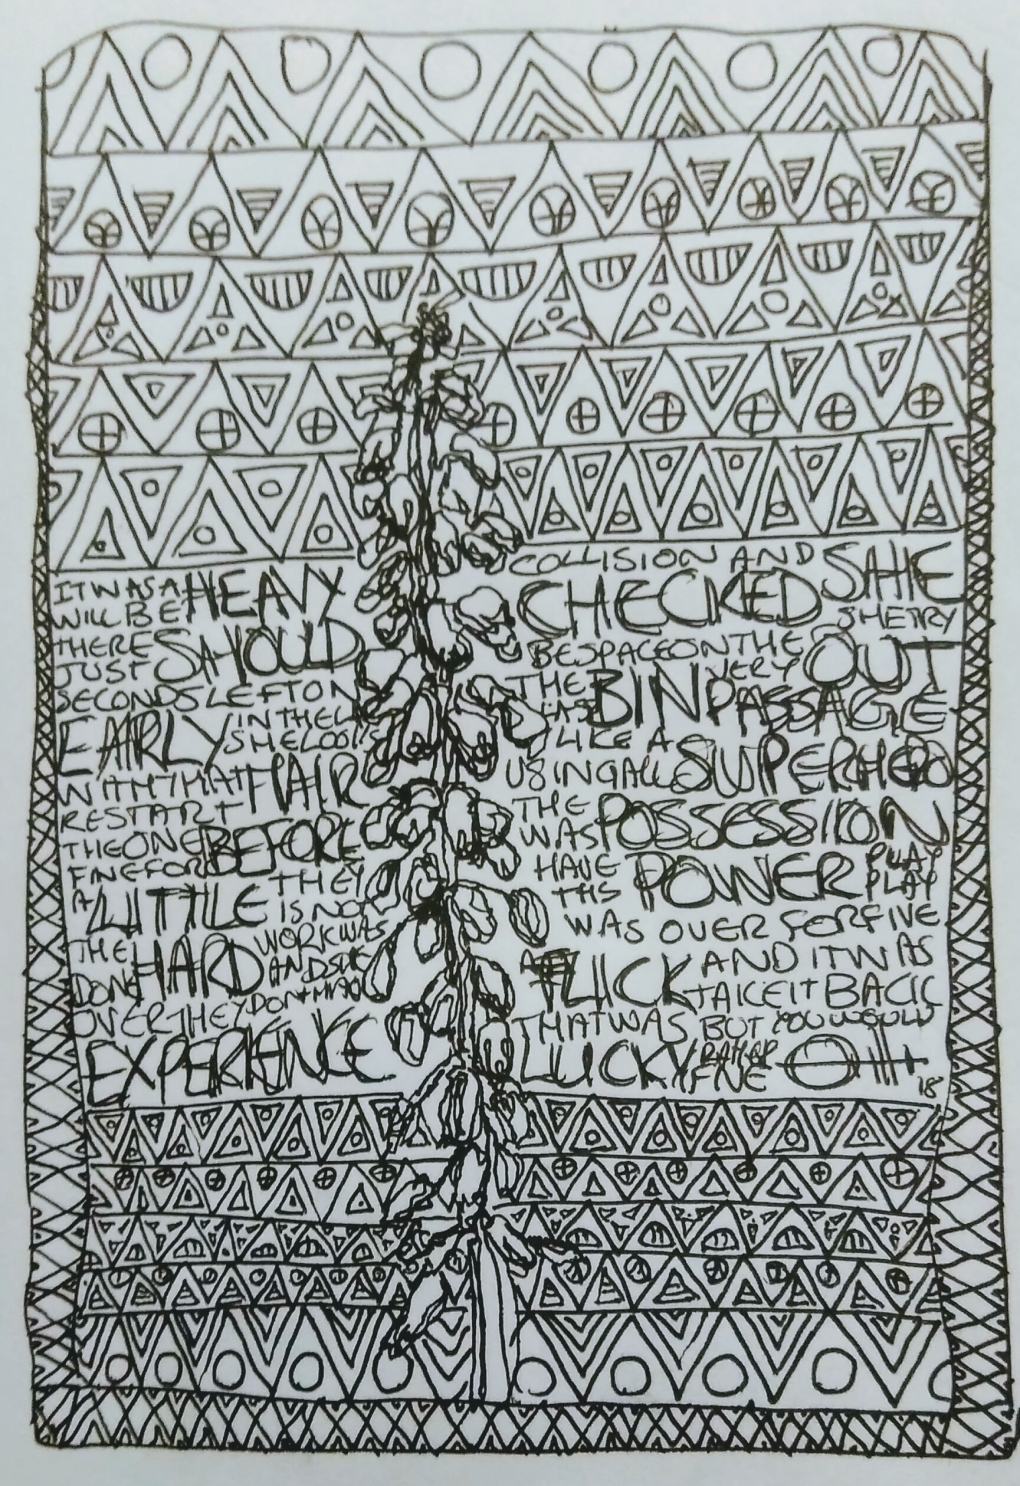 IT WAS A HEAVY COLLISION AND SHE
WILL BE CHECKED SHE TRY
THERE SHOULD BE SPACE ON THE OUT
JUST VERY
SECONDS LEFT ON THE BIN PASSAGE
EARLY IN THE
SHE LOOKS LIKE A SUPERHERO
WITH THAT HAIR USING ALL
RESTART THE POSSESSION
THE ONE BEFORE WAS
FINE FOR HAVE POWER PLAY
A LITTLE THEY THIS PLAY
IS NOW WAS OVER FOR FIVE
THE HARD WORK WAS FLICK AND IT WAS
DONE AND SHE TAKE IT BACK
OVER THEY DON'T THAT WAS BUT YOU WOULD
EXPERIENCE LUCKY RATHER
FINE
18